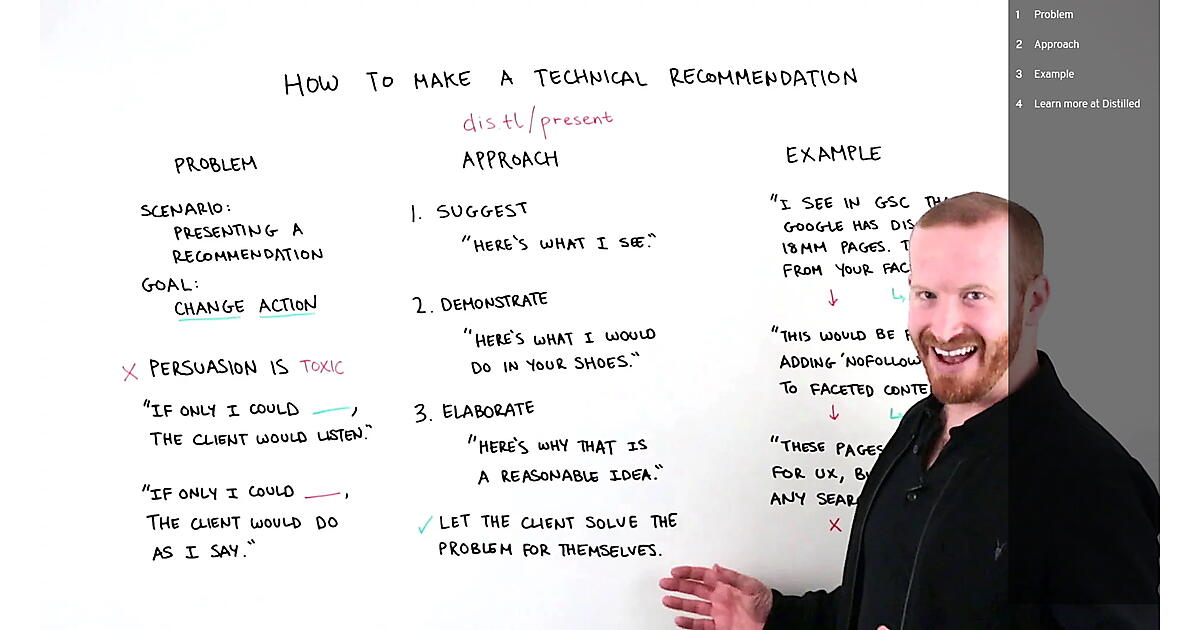 HOW TO MAKE A TECHNICAL RECOMMENDATION
dis.tl/present
PROBLEM
SCENARIO:
PRESENTING A
RECOMMENDATION
GOAL:
CHANGE ACTION
X PERSUASION IS TOXIC
"IF ONLY I COULD ___,
THE CLIENT WOULD LISTEN."
"IF ONLY I COULD ___,
THE CLIENT WOULD DO
AS I SAY."
APPROACH
1. SUGGEST
"HERE'S WHAT I SEE."
2. DEMONSTRATE
"HERE'S WHAT I WOULD
DO IN YOUR SHOES."
3. ELABORATE
"HERE'S WHY THAT IS
A REASONABLE IDEA."
✓ LET THE CLIENT SOLVE THE
PROBLEM FOR THEMSELVES.
EXAMPLE
"I SEE IN GSC
GOOGLE HAS
18MM PAGES.
FROM YOUR
"THIS WOULD BE
ADDING 'NOFOLLOW
TO FACETED
"THESE PAGES
FOR UX,
ANY
X
1 Problem
2 Approach
3 Example
4 Learn more at Distilled